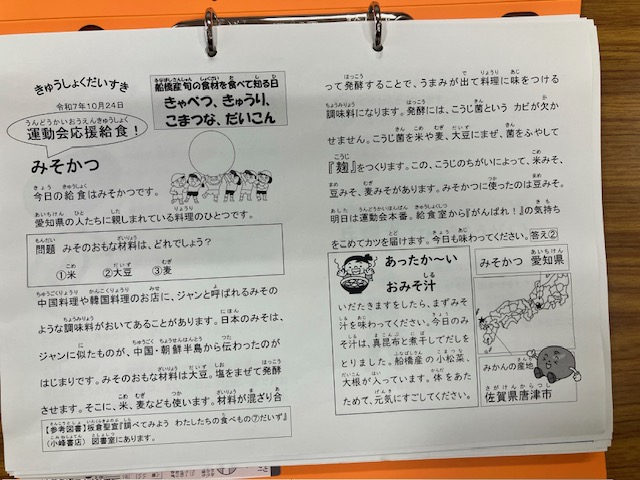 きゅうしょくだいすき
令和7年10月24日
運動会応援給食！
みそかつ
船橋産旬の食材を食べて知る日
きゃべつ、きゅうり、
こまつな、だいこん
今日の給食はみそかつです。
愛知県の人たちに親しまれている料理のひとつです。
問題 みそのおもな材料は、どれでしょう？
①米 ②大豆 ③麦
中国料理や韓国料理のお店に、ジャンと呼ばれるみその
ような調味料がおいてあることがあります。日本のみそは、
ジャンに似たものが、中国・朝鮮半島から伝わったのが
はじまりです。みそのおもな材料は大豆。塩をまぜて発酵
させます。そこに、米、麦なども使います。材料が混ざり合
【参考図書】板倉聖宣『調べてみよう わたしたちの食べもの⑦だいず』
(小峰書店) 図書室にあります。
って発酵することで、うまみが出て料理に味をつける
調味料になります。発酵には、こうじ菌という カビが欠か
せません。こうじ菌を米や麦、大豆にまぜ、菌をふやして
『麹』をつくります。この、こうじのちがいによって、米みそ、
豆みそ、麦みそがあります。みそかつに使ったのは豆みそ。
明日は運動会本番。給食室から『がんばれ！』の気持ち
をこめてカツを届けます。今日も味わってください。答え②
あったか〜い
おみそ汁
いただきますをしたら、まずみそ
汁を味わってください。今日のみ
そ汁は、真昆布と煮干しでだしを
とりました。船橋産の小松菜、
大根が入っています。体をあた
ためて、元気にすごしてください。
みそかつ 愛知県
みかんの産地
佐賀県唐津市